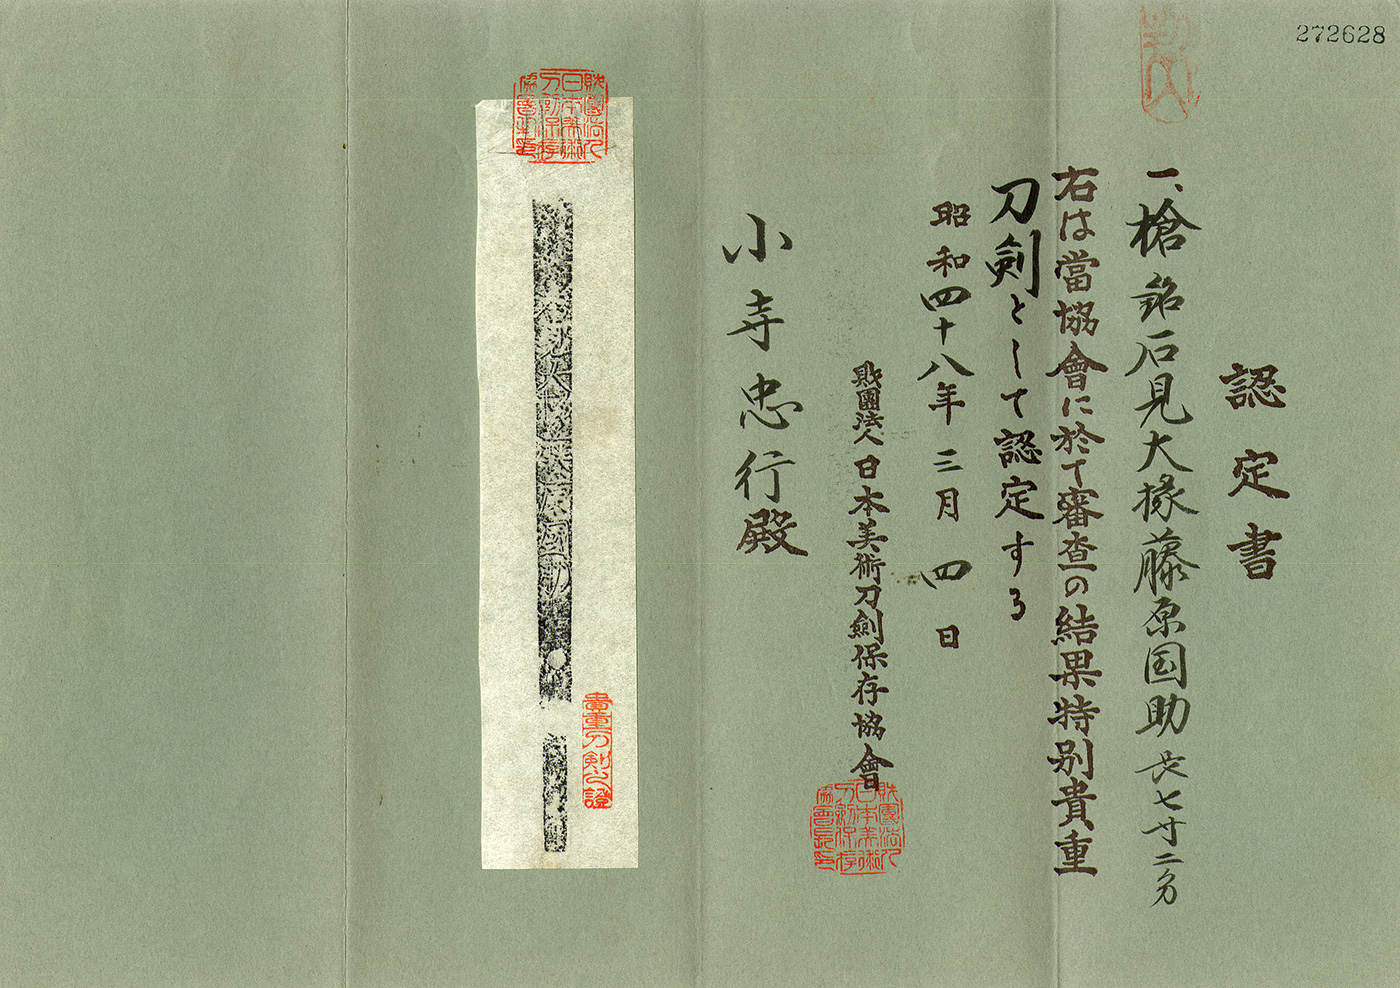 272628
認定書
一、槍 銘石見大掾藤原国助 長七寸二分
右は當協會に於て審査の結果特別貴重
刀剣として認定する
昭和四十八年三月四日
財團法人日本美術刀劍保存協會
財團法人日本美術刀剣保存協會長印
小寺忠行殿
財團法人日本美術刀剣保存協會長印
石見大掾藤原国助
貴重刀剣之證